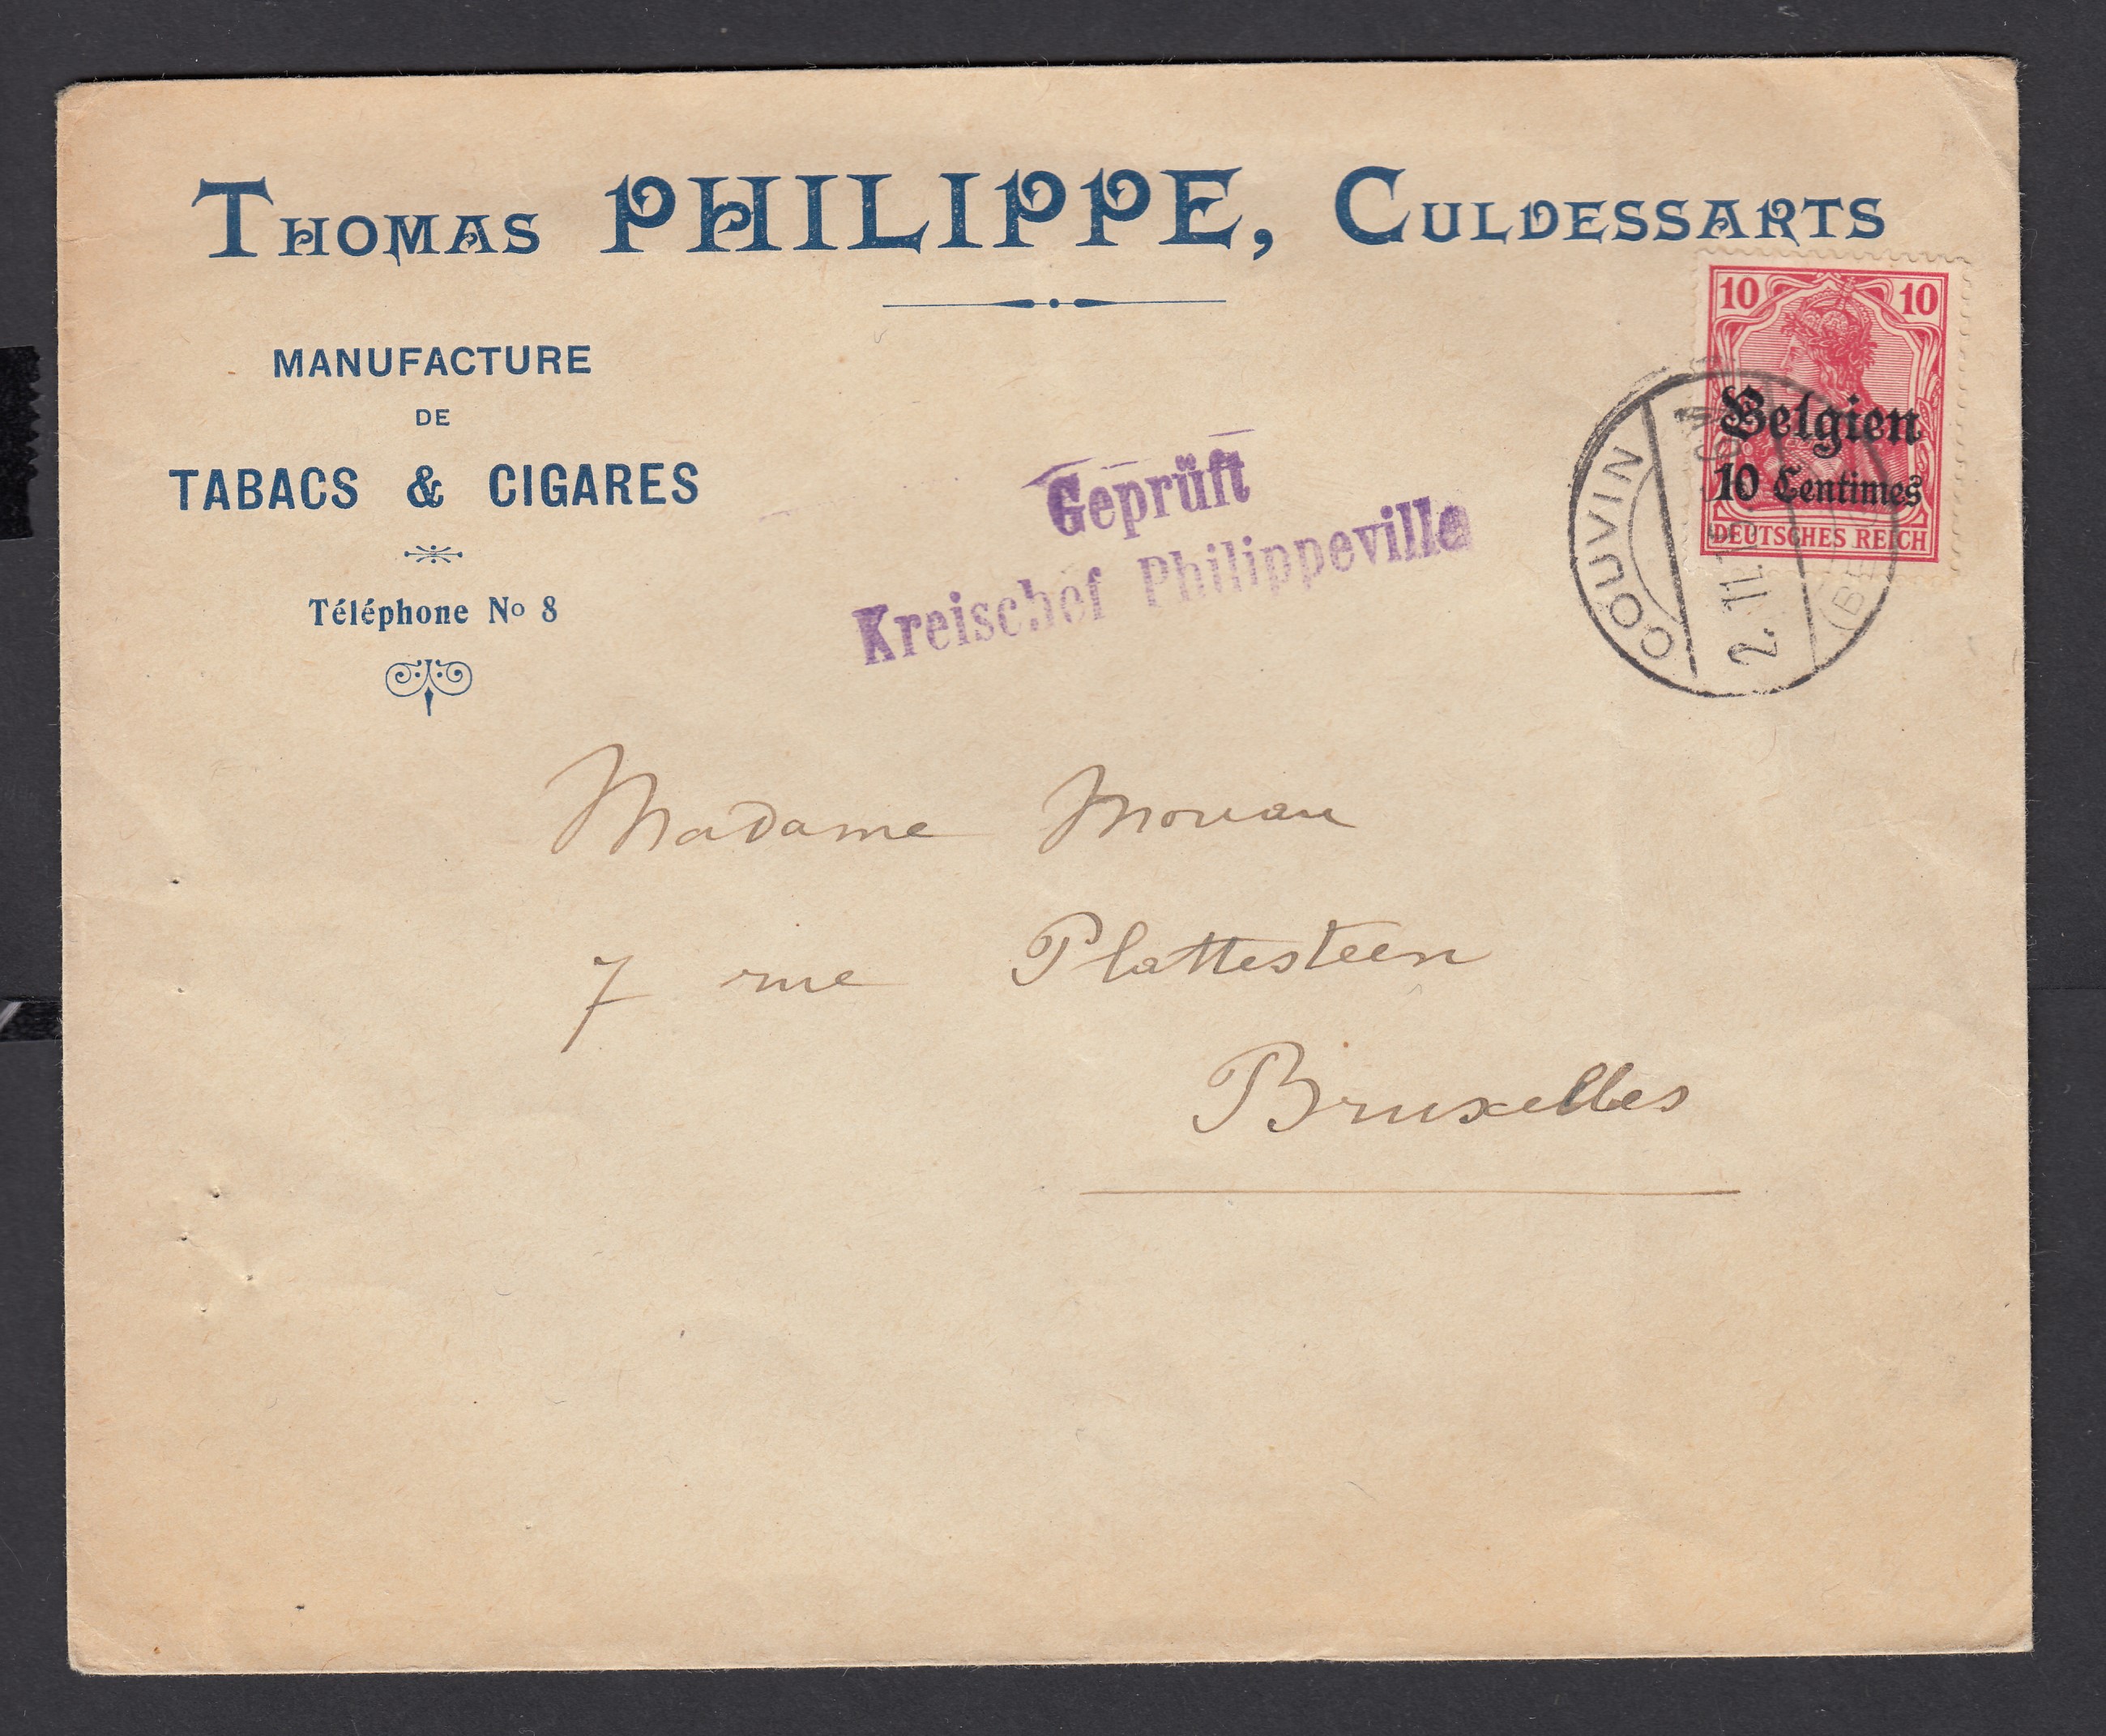 THOMAS PHILIPPE, CULDESSARTS
MANUFACTURE
DE
TABACS & CIGARES
Téléphone No 8
Geprüft
Kreischef Philippeville
10 10
Belgien
10 Centimes
DEUTSCHES REICH
COUVIN
2. 11.
(BE
Madame
7 rue Plattesteen
Bruxelles